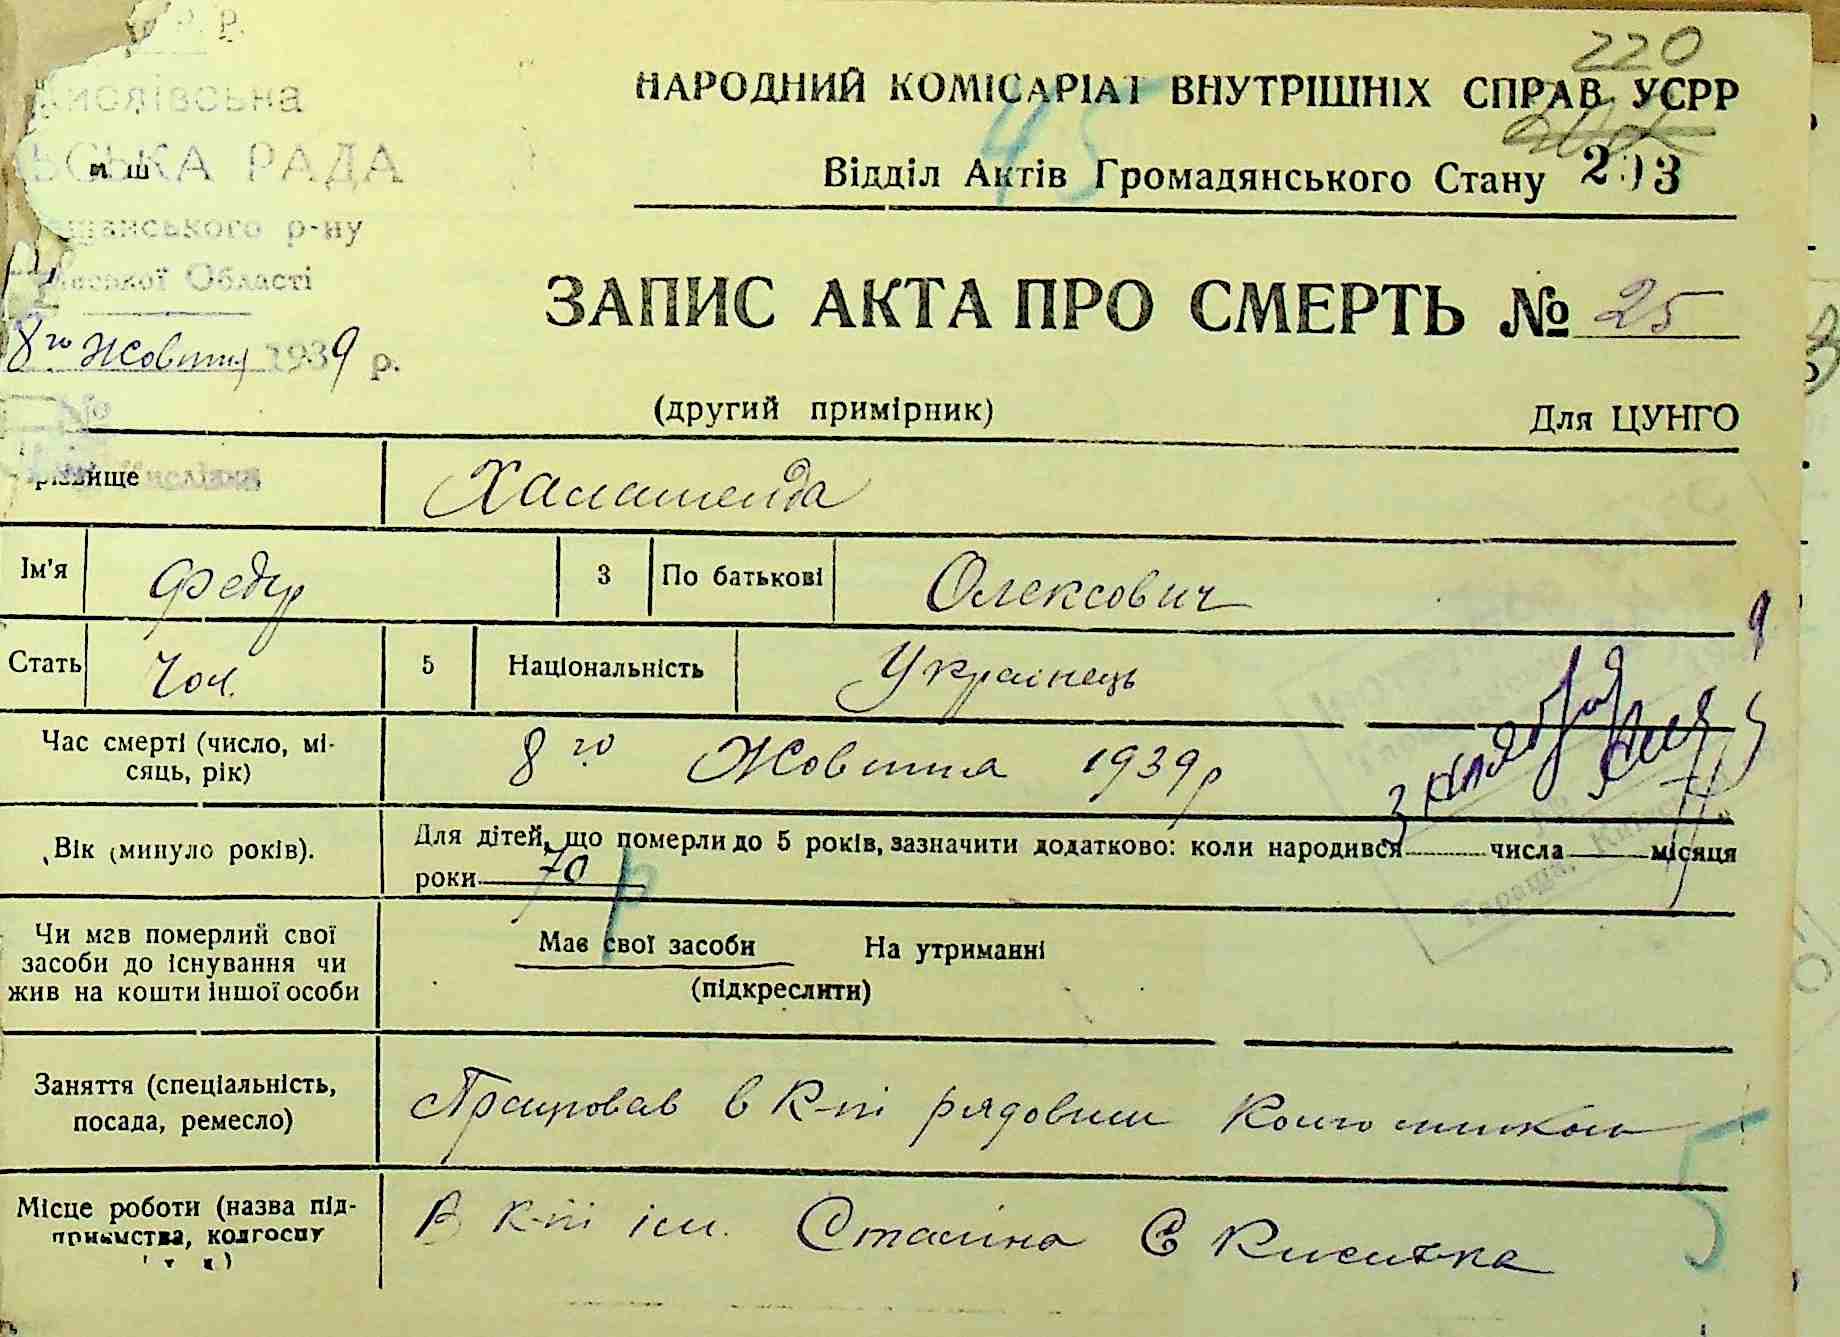 220
НАРОДНИЙ КОМІСАРІАТ ВНУТРІШНІХ СПРАВ УСРР
45
Відділ Актів Громадянського Стану 203
РАДА
р-ну
Області
ЗАПИС АКТА ПРО СМЕРТЬ № 25
8го Жовтня 1939 р.
(другий примірник)
Для ЦУНГО
різвище
Халашенда
Ім'я Федір 3 По батькові Олексович
Стать Чол. 5 Національність Українець
Час смерті (число, мі-
сяць, рік)
8го Жовтня 1939 р
Вік (минуло років).
Для дітей, що померли до 5 років, зазначити додатково: коли народився числа місяця
роки 70
Чи мав померлий свої
засоби до існування чи
жив на кошти іншої особи
Мав свої засоби На утриманні
(підкреслити)
Заняття (спеціальність,
посада, ремесло)
Працював в к-пі рядовим колгоспником
5
Місце роботи (назва під-
приємства, колгоспу
В к-пі ім. Сталіна С Кислівка